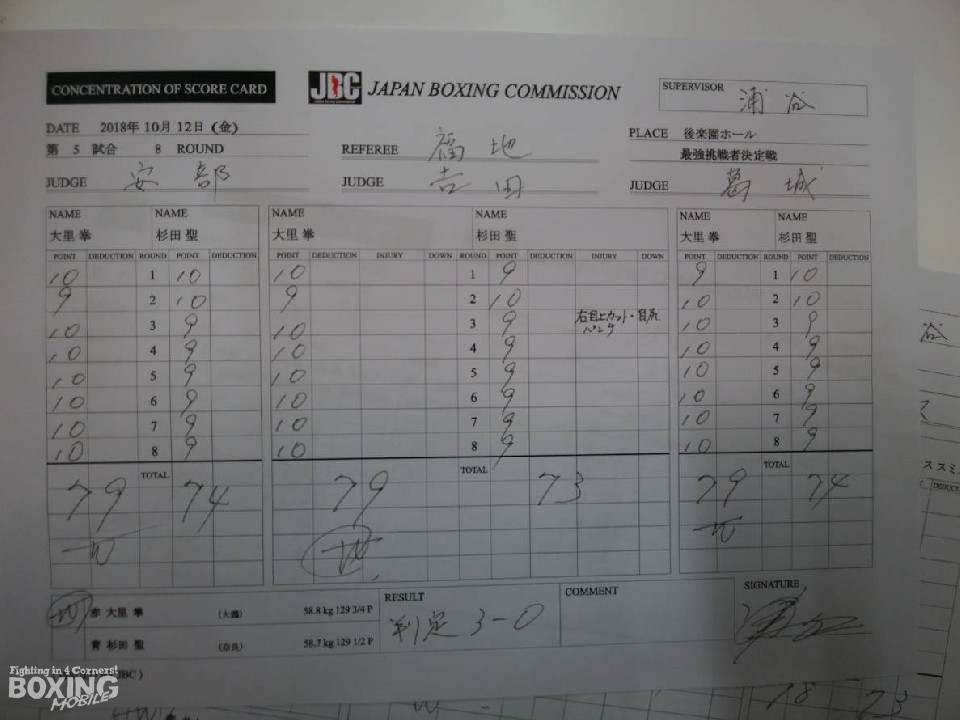 CONCENTRATION OF SCORE CARD
JBC JAPAN BOXING COMMISSION
SUPERVISOR 浦谷
DATE 2018年 10月 12日 (金)
PLACE 後楽園ホール
第 5 試合 8 ROUND
REFEREE 福地
最強挑戦者決定戦
JUDGE 安部
JUDGE 吉田
JUDGE 葛城
NAME NAME NAME NAME NAME NAME
大里 拳 杉田 聖 大里 拳 杉田 聖 大里 拳 杉田 聖
POINT DEDUCTION ROUND POINT DEDUCTION POINT DEDUCTION INJURY DOWN ROUND POINT DEDUCTION INJURY DOWN POINT DEDUCTION ROUND POINT DEDUCTION
10 1 10 10 1 9 9 1 10
9 2 10 9 2 10 10 2 10
10 3 9 10 3 9 右目上カット・ 10 3 9
10 4 9 10 4 9 10 4 9
10 5 9 10 5 9 10 5 9
10 6 9 10 6 9 10 6 9
10 7 9 10 7 9 10 7 9
10 8 9 10 8 9 10 8 9
TOTAL TOTAL TOTAL
79 74 79 73 79 74
W W W
W 赤 大里 拳 (大鵬) 58.8 kg 129 3/4 P
RESULT
判定 3-0
COMMENT
SIGNATURE
青 杉田 聖 (奈良) 58.7 kg 129 1/2 P
JBC )
Fighting in 4 Corners!
BOXING
MOBILE
谷
ススミ
DEDUCT
78 73